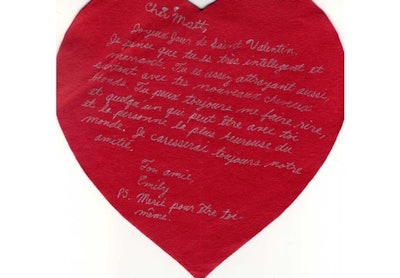 Chèr Matt,
Joyeux Jour de Saint Valentin.
Je pense que tu es très intelligent et
marrant. Tu es assez attrayant aussi,
surtout avec tes nouveaux cheveux
blonds. Tu peux toujours me faire rire,
et quelqu'un qui peut être avec toi
et le personne le plus heureuse du
monde. Je caresserai toujours notre
amitié.
Ton amie,
Emily
PS. Merci pour être toi-
même.